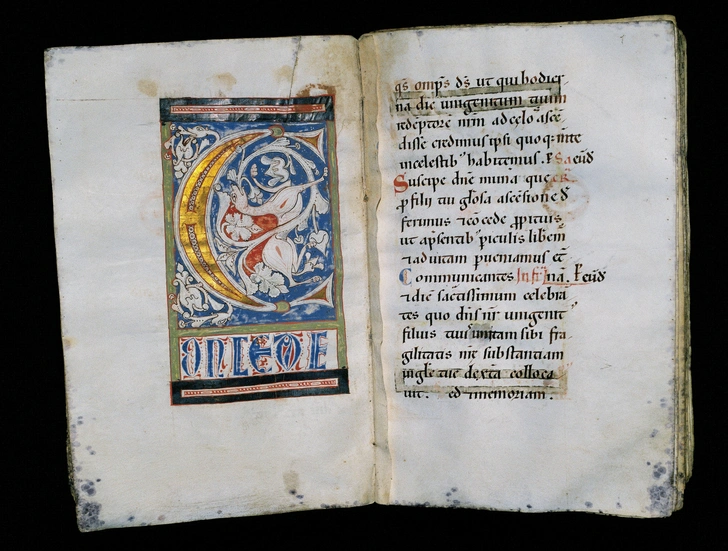 C
ONCEDE
q̄s omp̄s d̄s ut qui hodier
na die unigenitum tuum
redēptorē nrm̄ ad celos ascē
disse credimus ipsi quoq; mte
in celestib habitemus. Sa eūd
Suscipe dn̄e munera que
p filij tui gl̄osa ascēsione d
ferimus ⁊ cōcede ꝓpitius
ut a p̄sentib piculis liberem
⁊ ad uitam perueniamus et
Communicantes Inf na.
⁊ diē sacratissimum celebra
tes quo dn̄s nr̄ unigenit
filius tuus unitam sibi fra
gilitatis nr̄e substantiam
in gl̄e tue dextra colloca
uit. Sed ⁊ memoriam.